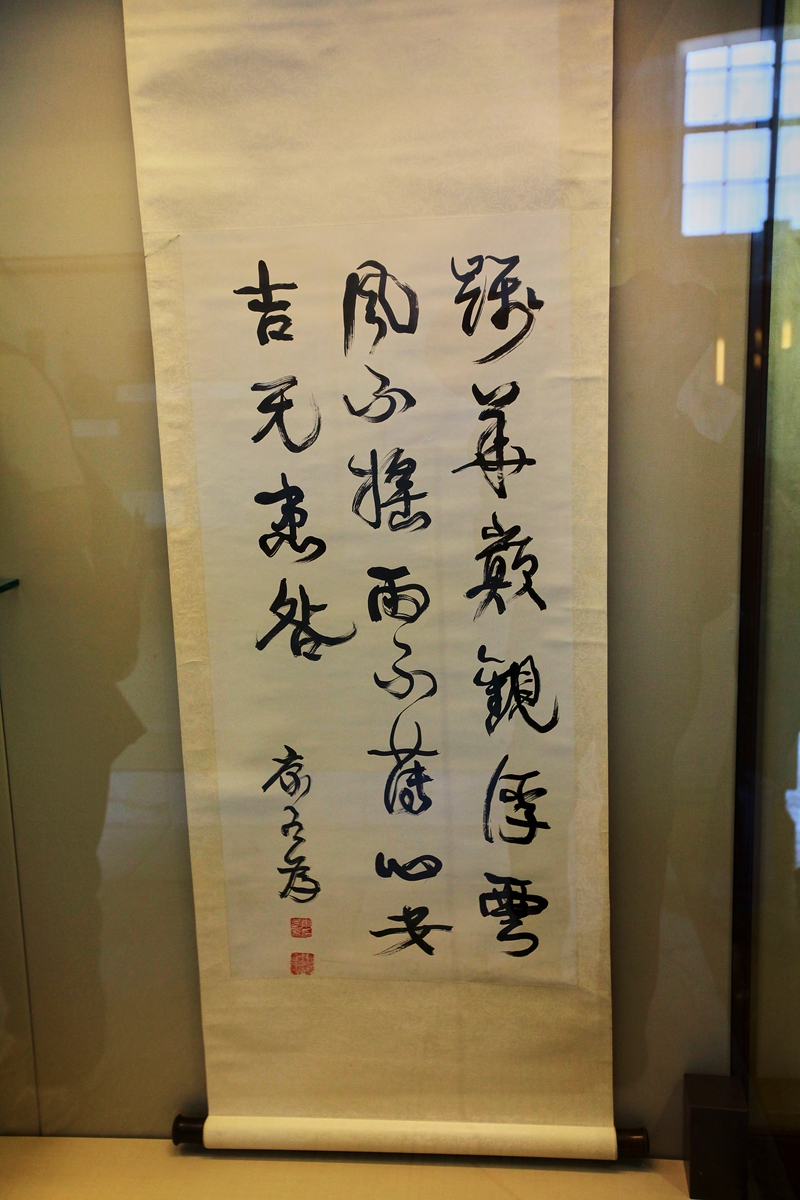 躡華巔觀浮雲
風不搖雨不薄心安
吉无患咎
康有為